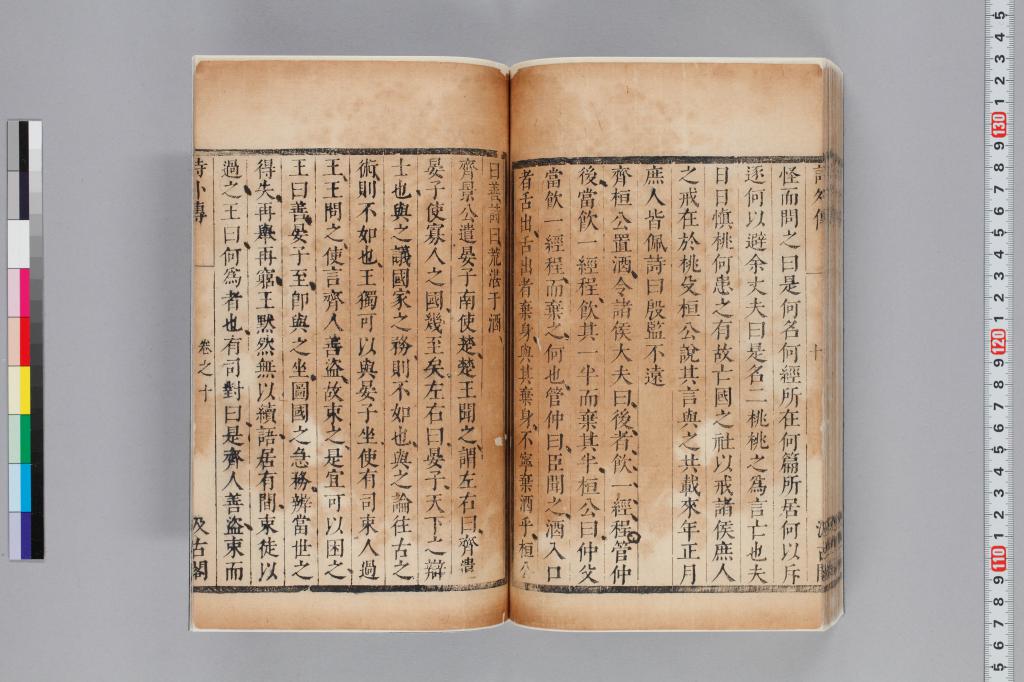 怪而問之曰是何名何經所在何篇所居何以斥
逐何以避余丈夫曰是名二桃桃之爲言亡也夫
日日慎桃何患之有故亡國之社以戒諸侯庶人
之戒在於桃殳桓公說其言與之共載來年正月
庶人皆佩詩曰殷監不遠
齊桓公置酒令諸侯大夫曰後者飲一經程管仲
後當飲一經程飲其一半而棄其半桓公曰仲父
當飲一經程而棄之何也管仲曰臣聞之酒入口
者舌出舌出者棄身與其棄身不寧棄酒乎桓公
曰善詩曰荒湛于酒
齊景公遣晏子南使楚楚王聞之謂左右曰齊遣
晏子使寡人之國幾至矣左右曰晏子天下之辯
士也與之議國家之務則不如也與之論往古之
術則不如也王獨可以與晏子坐使有司束人過
王王問之使言齊人善盜故束之是宜可以困之
王曰善晏子至卽與之坐圖國之急務辨當世之
得失再舉再窮王默然無以續語居有間束徒以
過之王曰何爲者也有司對曰是齊人善盜束而
詩外傳
卷之十
汲古閣
130
120
110